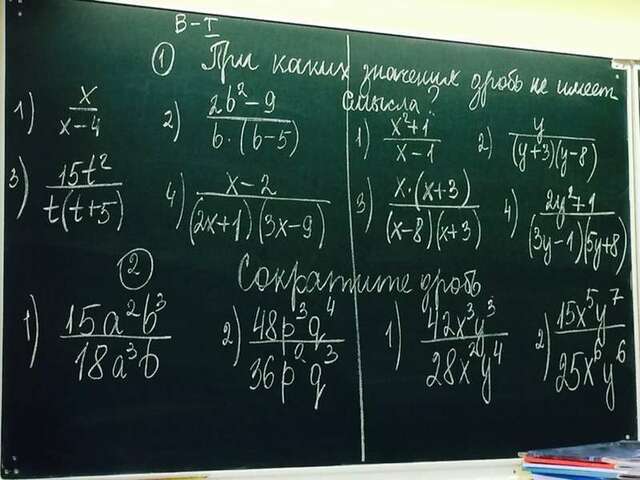 В-I
① При каких значениях дробь не имеет
смысла?
1) x/(x-4) 2) (2b²-9)/(b·(b-5)) 1) (x²+1)/(x-1) 2) y/((y+3)(y-8))
3) 15t²/(t(t+5)) 4) (x-2)/((2x+1)(3x-9)) 3) x·(x+3)/((x-8)(x+3)) 4) (2y²+1)/((3y-1)(5y+8))
② Сократите дробь
1) 15a²b³/18a³b 2) 48p³q⁴/36p²q³ 1) 42x³y³/28x²y⁴ 2) 15x⁵y⁷/25x⁶y⁶